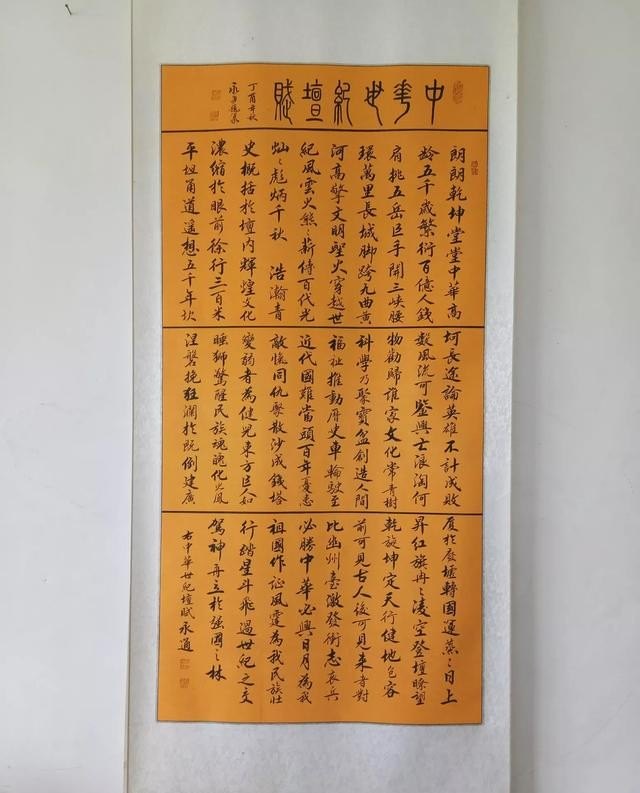 中華世紀壇賦
丁酉年秋
永通
朗朗乾坤堂堂中華高
齡五千歲繁衍百億人鐵
肩挑五岳巨手開三峽腰
環萬里長城脚跨九曲黄
河高擎文明聖火穿越世
紀風雲火熊々薪傳百代光
灿々彪炳千秋 浩瀚青
史概括於壇内輝煌文化
濃縮於眼前徐行三百米
平坦甬道遥想五千年坎
坷長途論英雄不計成敗
數風流可鑒興亡浪淘何
物勸歸誰家文化常青樹
科學乃聚寶盆創造人間
福祉推動歷史車輪駛至
近代國難當頭百年憂患
敵愾同仇聚散沙成鐵塔
變弱者為健兒東方巨人如
睡獅驚醒民族魂魄化火鳳
涅磐挽狂瀾於既倒建廣
厦於廢墟轉國運蒸々日上
昇紅旗冉々凌空登壇瞭望
乾旋坤定天行健地包容
前可見古人後可見来者對
比幽州臺激發衝志哀兵
必勝中華必興日月為我
祖國作証風霆為我民族壯
行踏星斗飛過世紀之交
駕神立於强國之林
右中華世紀壇賦永通